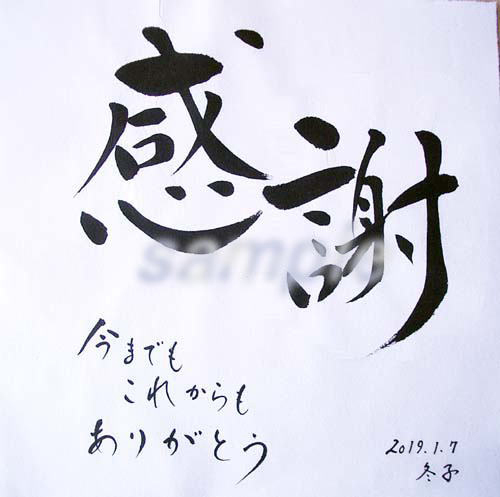 感謝
sample
今までも
これからも
ありがとう
2019.1.7
冬子